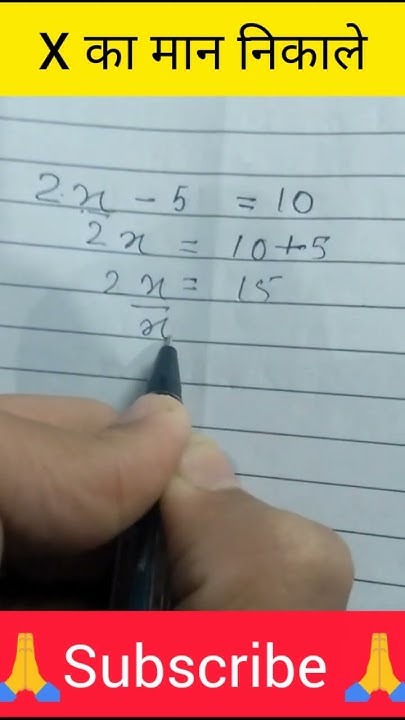 X का मान निकाले
2x - 5 = 10
2x = 10+5
2x = 15
x
🙏Subscribe 🙏